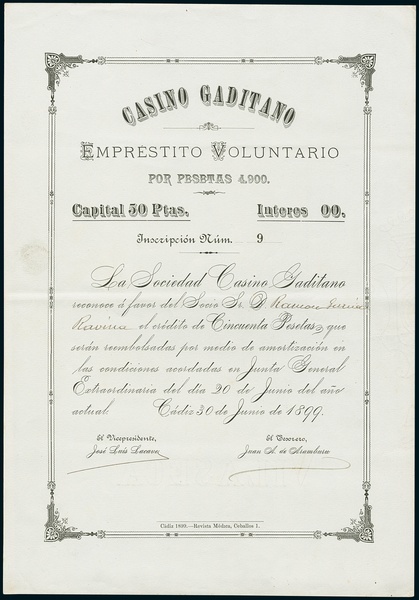 CASINO GADITANO
EMPRÉSTITO VOLUNTARIO
POR PESETAS 4.900.
Capital 50 Ptas. Interes 00.
Inscripción Núm. 9
La Sociedad Casino Gaditano
reconoce á favor del Socio Sr. D. Ramon
Ravina el crédito de Cincuenta Pesetas, que
serán reembolsadas por medio de amortización en
las condiciones acordadas en Junta General
Extraordinaria del día 20 de Junio del año
actual. Cádiz 30 de Junio de 1899.
El Vicepresidente, El Tesorero,
José Luis Lacave Juan A. de Aramburu
Cádiz 1899.—Revista Médica, Ceballos 1.